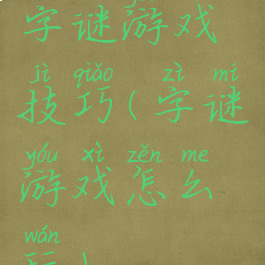 字谜游戏
jì qiǎo zì mí
技巧(字谜
yóu xì zěn me
游戏怎么
wán
玩)